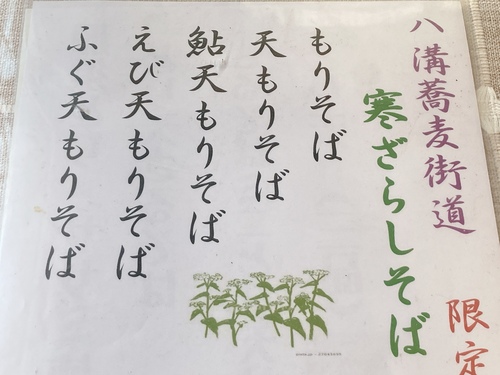 八溝蕎麦街道
寒ざらしそば
限定
もりそば
天もりそば
鮎天もりそば
えび天もりそば
ふぐ天もりそば